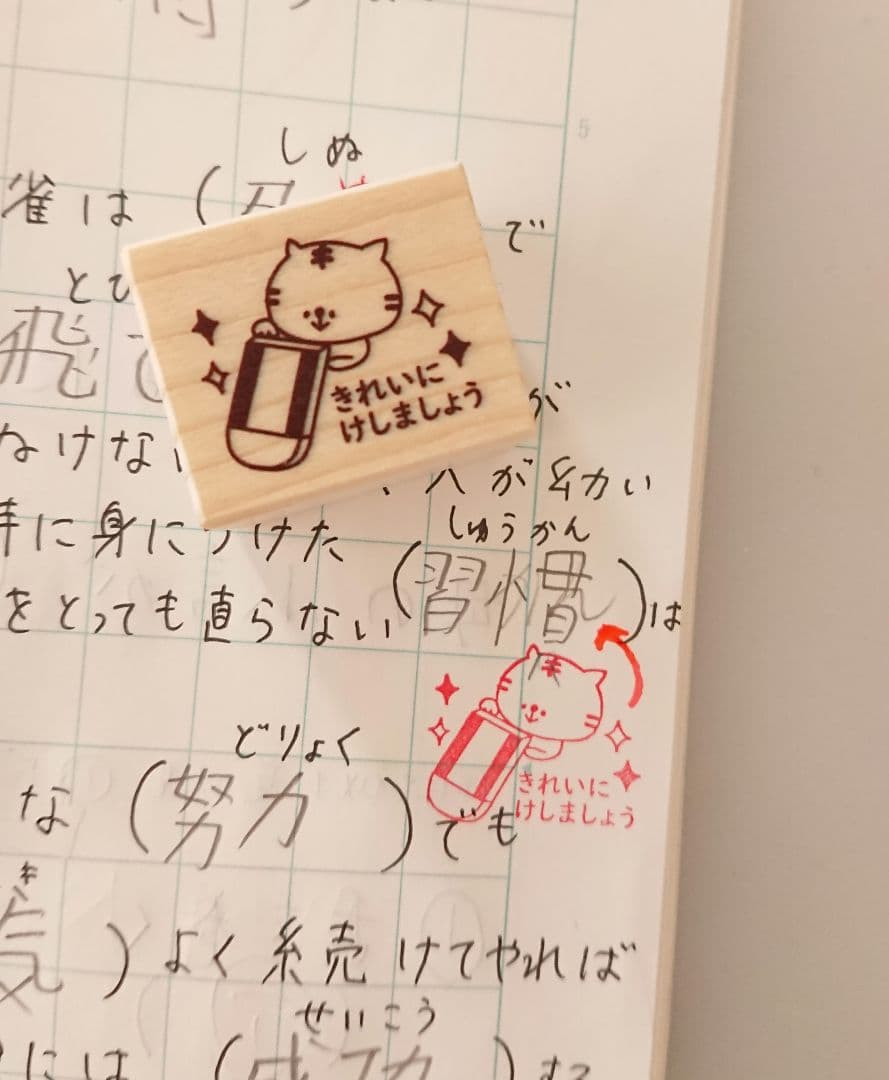 5
しぬ
雀は（
で
とび
飛
が
きれいに
けしましょう
ねけない
が幼い
に身につけた
しゅうかん
をとっても直らない（習慣）は
きれいに
けしましょう
どりょく
な（努力）でも
き
気）よく続けてやれば
せいこう
には（成功）する